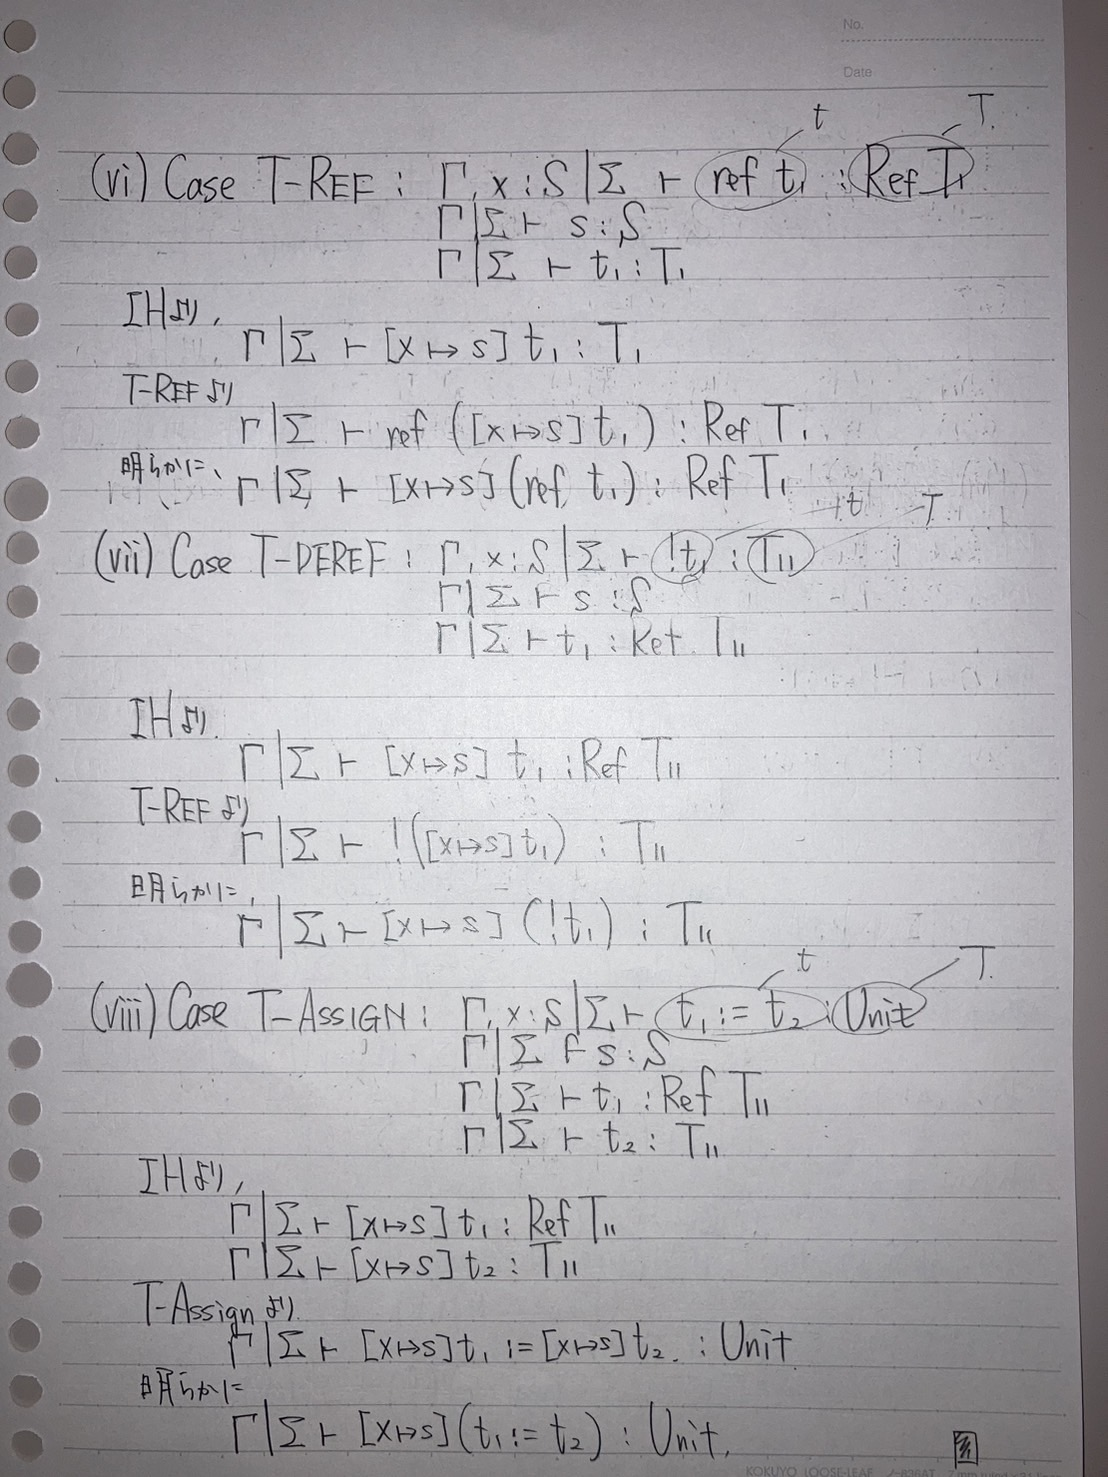 No.
Date
t T.
(vi) Case T-REF : Γ, x : S | Σ ⊢ ref t₁ : Ref T₁
Γ | Σ ⊢ s : S
Γ | Σ ⊢ t₁ : T₁
IHより,
Γ | Σ ⊢ [x ↦ s] t₁ : T₁
T-REFより
Γ | Σ ⊢ ref ([x ↦ s] t₁) : Ref T₁
明らかに、 Γ | Σ ⊢ [x ↦ s] (ref t₁) : Ref T₁
t T
(vii) Case T-DEREF : Γ, x : S | Σ ⊢ !t₁ : T₁₁
Γ | Σ ⊢ s : S
Γ | Σ ⊢ t₁ : Ref T₁₁
IHより.
Γ | Σ ⊢ [x ↦ s] t₁ : Ref T₁₁
T-REFより
Γ | Σ ⊢ !([x ↦ s] t₁) : T₁₁
明らかに,
Γ | Σ ⊢ [x ↦ s] (!t₁) : T₁₁
t T.
(viii) Case T-ASSIGN : Γ, x : S | Σ ⊢ t₁ := t₂ : Unit
Γ | Σ ⊢ s : S
Γ | Σ ⊢ t₁ : Ref T₁₁
Γ | Σ ⊢ t₂ : T₁₁
IHより,
Γ | Σ ⊢ [x ↦ s] t₁ : Ref T₁₁
Γ | Σ ⊢ [x ↦ s] t₂ : T₁₁
T-Assignより.
Γ | Σ ⊢ [x ↦ s] t₁ := [x ↦ s] t₂. : Unit
明らかに
Γ | Σ ⊢ [x ↦ s] (t₁ := t₂) : Unit.
KOKUYO LOOSE-LEAF